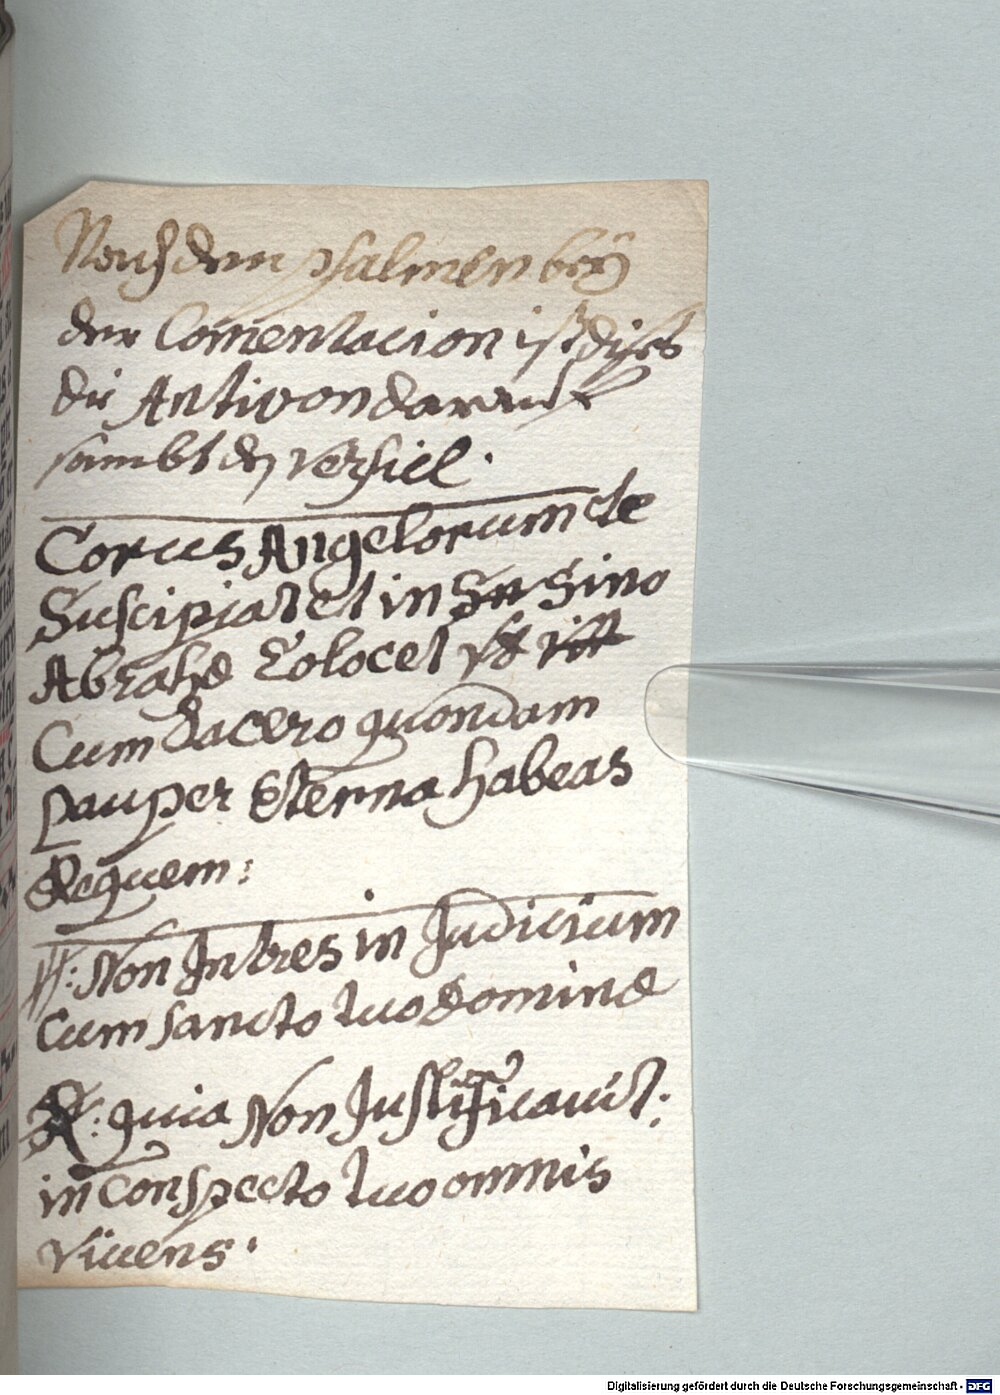 Nach dem psalmen beÿ
der Comentacion ist dises
die Antivon darauf
sambt dem versicl.
Corus Angelorum te
Suscipiat et in Sino
Abrahe Colocet
Cum Lacero quondam
pauper Eterna habeas
Requem:
V: Non Intres in Judicium
Cum sancto tuo domine
R: quia Non Justificavit:
in Conspecto tuo omnis
Vivens.
Digitalisierung gefördert durch die Deutsche Forschungsgemeinschaft - DFG